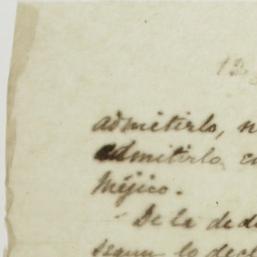 admitirlo, n
admitirlo en
Méjico.
De la de d
segun lo decl